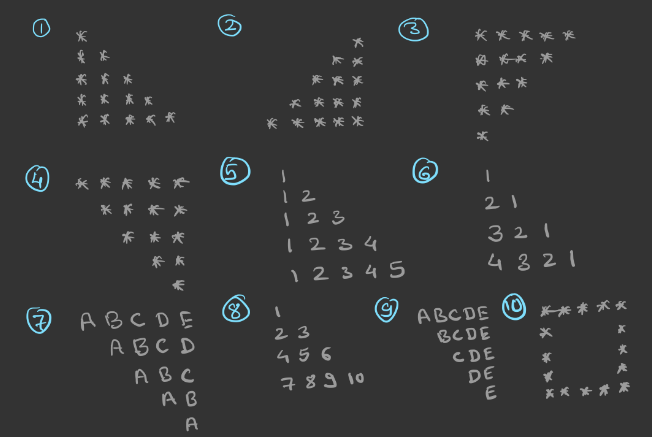 ①
*
* *
* * *
* * * *
* * * * *
②
*
* *
* * *
* * * *
* * * * *
③
* * * * *
* * * *
* * *
* *
*
④
* * * * *
* * * *
* * *
* *
*
⑤
1
1 2
1 2 3
1 2 3 4
1 2 3 4 5
⑥
1
2 1
3 2 1
4 3 2 1
⑦
A B C D E
A B C D
A B C
A B
A
⑧
1
2 3
4 5 6
7 8 9 10
⑨
A B C D E
B C D E
C D E
D E
E
⑩
* * * * *
* *
* *
* *
* * * * *